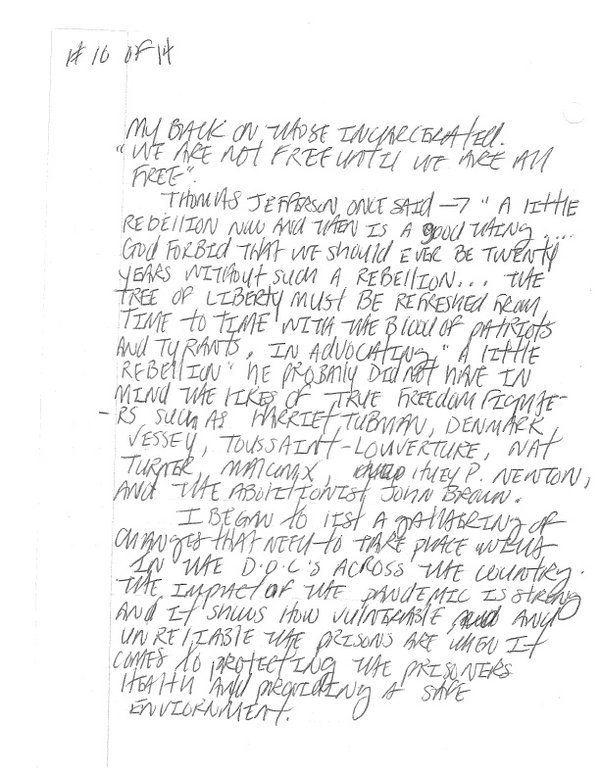 # 10 OF 14
MY BACK ON THOSE INCARCERATED.
"WE ARE NOT FREE UNTIL WE ARE All
FREE".
THOMAS JEFFERSON ONCE SAID → "A little
REBELLION NOW AND THEN IS A good THING....
GOD FORBID THAT WE SHOULD EVER BE TWENTY
YEARS WITHOUT SUCH A REBELLION... THE
TREE OF LIBERTY MUST BE REFRESHED FROM
TIME TO TIME WITH THE Blood OF PATRIOTS
AND TYRANTS. IN ADVOCATING "A little
REBELLION" HE PROBABLY DID NOT HAVE IN
MIND THE LIKES OF TRUE FREEDOM FIGHTE-
-RS SUCH AS HARRIET TUBMAN, DENMARK
VESSEY, TOUSSAINT-LOUVERTURE, NAT
TURNER, MALCOLM X, HUEY P. NEWTON,
AND THE ABOLITIONIST JOHN BROWN.
I BEGAN TO LIST A GATHERING OF
CHANGES THAT NEED TO TAKE PLACE WITH
IN THE D.O.C'S ACROSS THE COUNTRY.
THE IMPACT OF THE PANDEMIC IS STRONG
AND IT SHOWS HOW VULNERABLE AND
UNRELIABLE THE PRISONS ARE WHEN IT
COMES TO PROTECTING THE PRISONERS
HEALTH AND PROVIDING A SAFE
ENVIORNMENT.